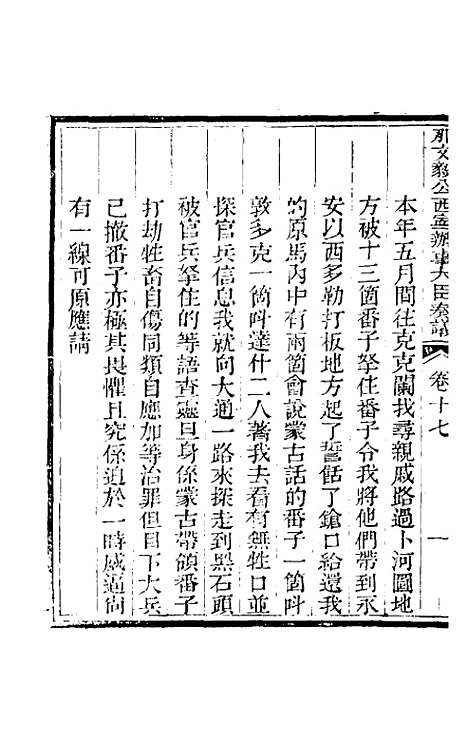 那文毅公西寧辦事大臣奏議 卷十七 一
本年五月間往克克闌我尋親戚路過卜河圖地
方被十三箇番子拏住番子令我將他們帶到永
安以西多勒打板地方起了誓餂了鎗口給還我
的原馬內中有兩箇會說蒙古話的番子一箇呌
敦多克一箇呌達什二人著我去看有無牲口並
探官兵信息我就向大通一路來探走到黑石頭
被官兵拏住的等語查靈旦身係蒙古帶領番子
打劫牲畜自傷同類自應加等治罪但目下大兵
已撤番子亦極其畏懼且究係迫於一時威逼尚
有一線可原應請